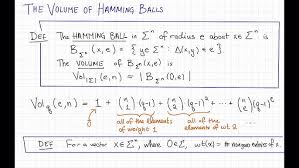 THE VOLUME OF HAMMING BALLS
DEF The HAMMING BALL in Σⁿ of radius e about x∈Σⁿ is
B_Σⁿ(x,e) = { y∈Σⁿ : Δ(x,y) ≤ e }
The VOLUME of B_Σⁿ(x,e) is
Vol_|Σ|(e,n) = |B_Σⁿ(0,e)|
Vol_q(e,n) = 1 + (n 1)(q-1) + (n 2)(q-1)² + ... + (n e)(q-1)^e
0
all of the elements of weight 1
all of the elements of wt. 2
DEF For a vector x∈Σⁿ, where 0∈Σ, wt(x) = # nonzero entries of x.